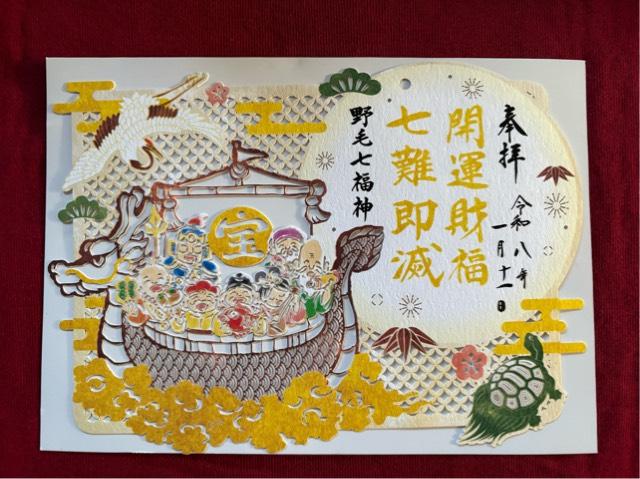 奉拝
令和八年
一月十一日
開運財福
七難即滅
野毛七福神
宝